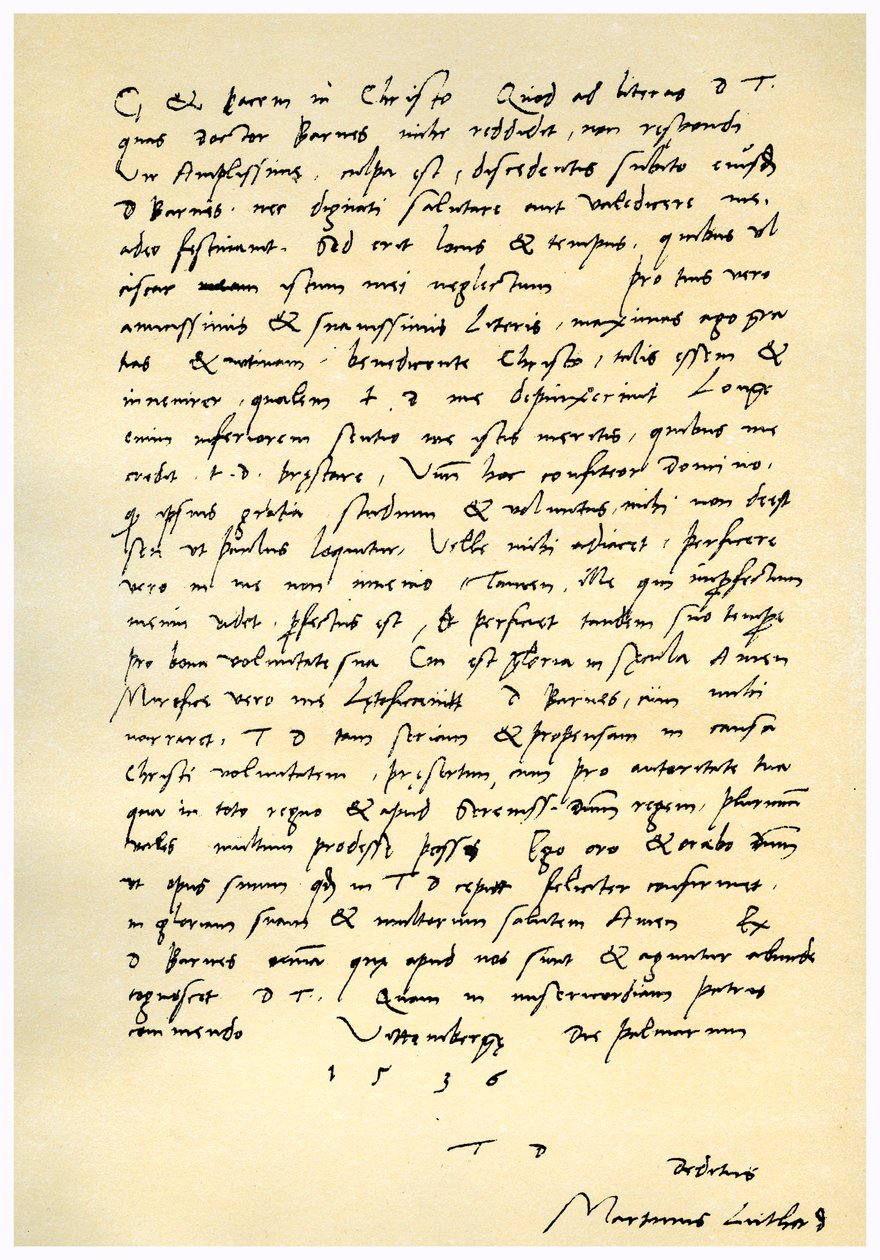 G & pacem in Christo Quod ad literas D T.
quas Doctor Barnes mihi reddidit, non respondi
Vir Amplissime, culpa est, discedentis subito eiusd
D Barnes. nec dignati salutare aut valedicere me,
adeo festinavit. Sed erit locus & tempus, quibus ul
ciscar istum mei neglectum pro tuis vero
amicissimis & suavissimis literis, maximas ago gra
tias & utinam benedicente Christo, talis essem &
invenirer, qualem t. D me depinxerint Longe
enim inferiorem sentio me istis meritis, quibus me
credit t. D. pręstare, Unum hoc confiteor Domino,
q ipsius gratia studium & voluntas, mihi non deest
seu ut paulus loquitur, Velle mihi adiacet, perficere
vero in me non invenio Tamen, ille qui imperfectum
meum videt. perfectus est, & perficiet tandem suo tempore
pro bona voluntate sua Cui est gloria in sęcula Amen
Mirifice vero me lętificavit D Barnes, cum mihi
narraret, T D tam seriam & propensam in causa
Christi voluntatem, pręsertim, cum pro autoritate tua
qua in toto regno & apud Sereniss. Dnum regem, plurimum
vales multum prodesse possis Ego oro & orabo Dnum
ut opus suum qd in T D cepit feliciter confirmet,
in gloriam suam & multorum salutem Amen Ex
D Barnes omnia quę apud nos sunt & aguntur abunde
cognoscet D T. Quam in misericordiam patris
commendo Vittembergę Die palmarum
1 5 3 6
T D
deditus
Martinus Luther D